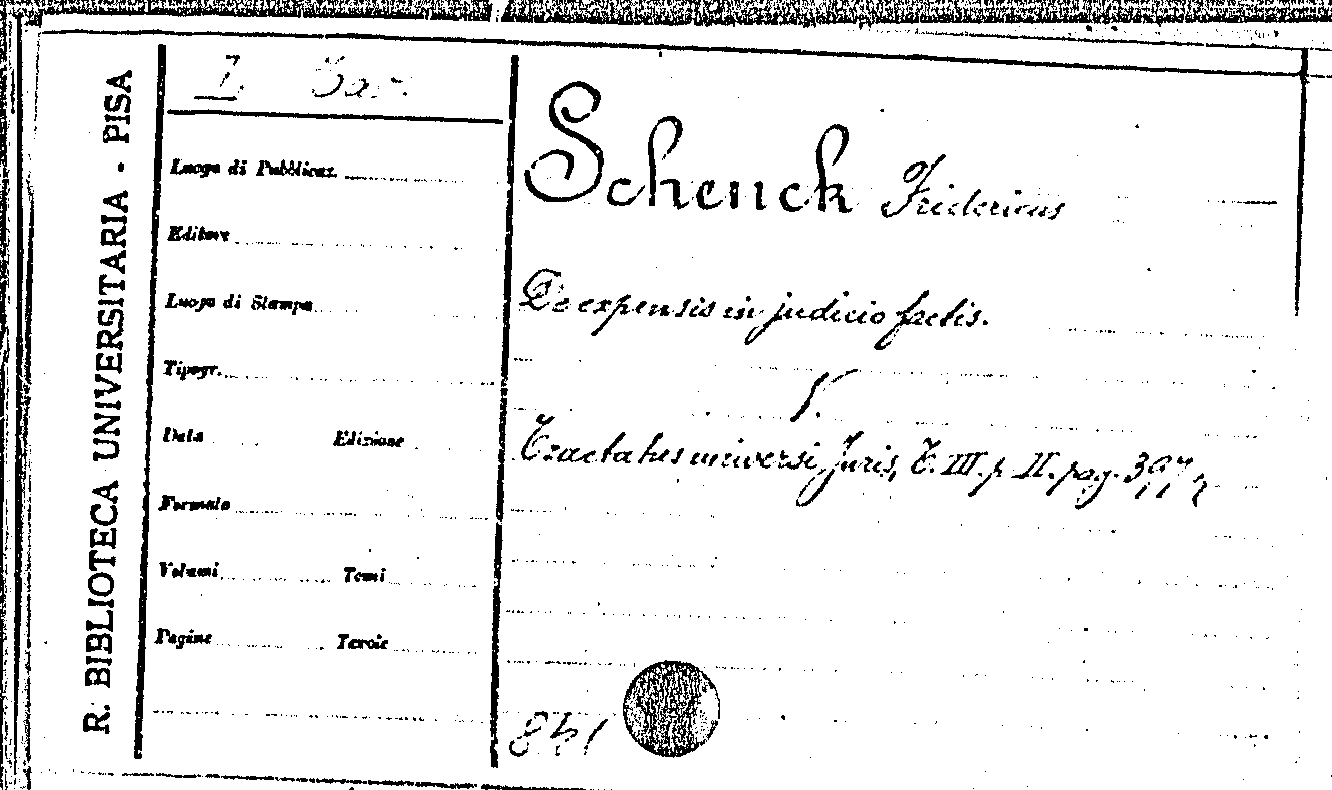 R. BIBLIOTECA UNIVERSITARIA - PISA
Luogo di Pubblicaz.
Editore
Luogo di Stampa
Tipogr.
Data Edizione
Formato
Volumi Tomi
Pagine Tavole
Schenck Fridericus
De expensis in judicio factis.
Tractatus universi Juris, T. III. p. II. pag. 397